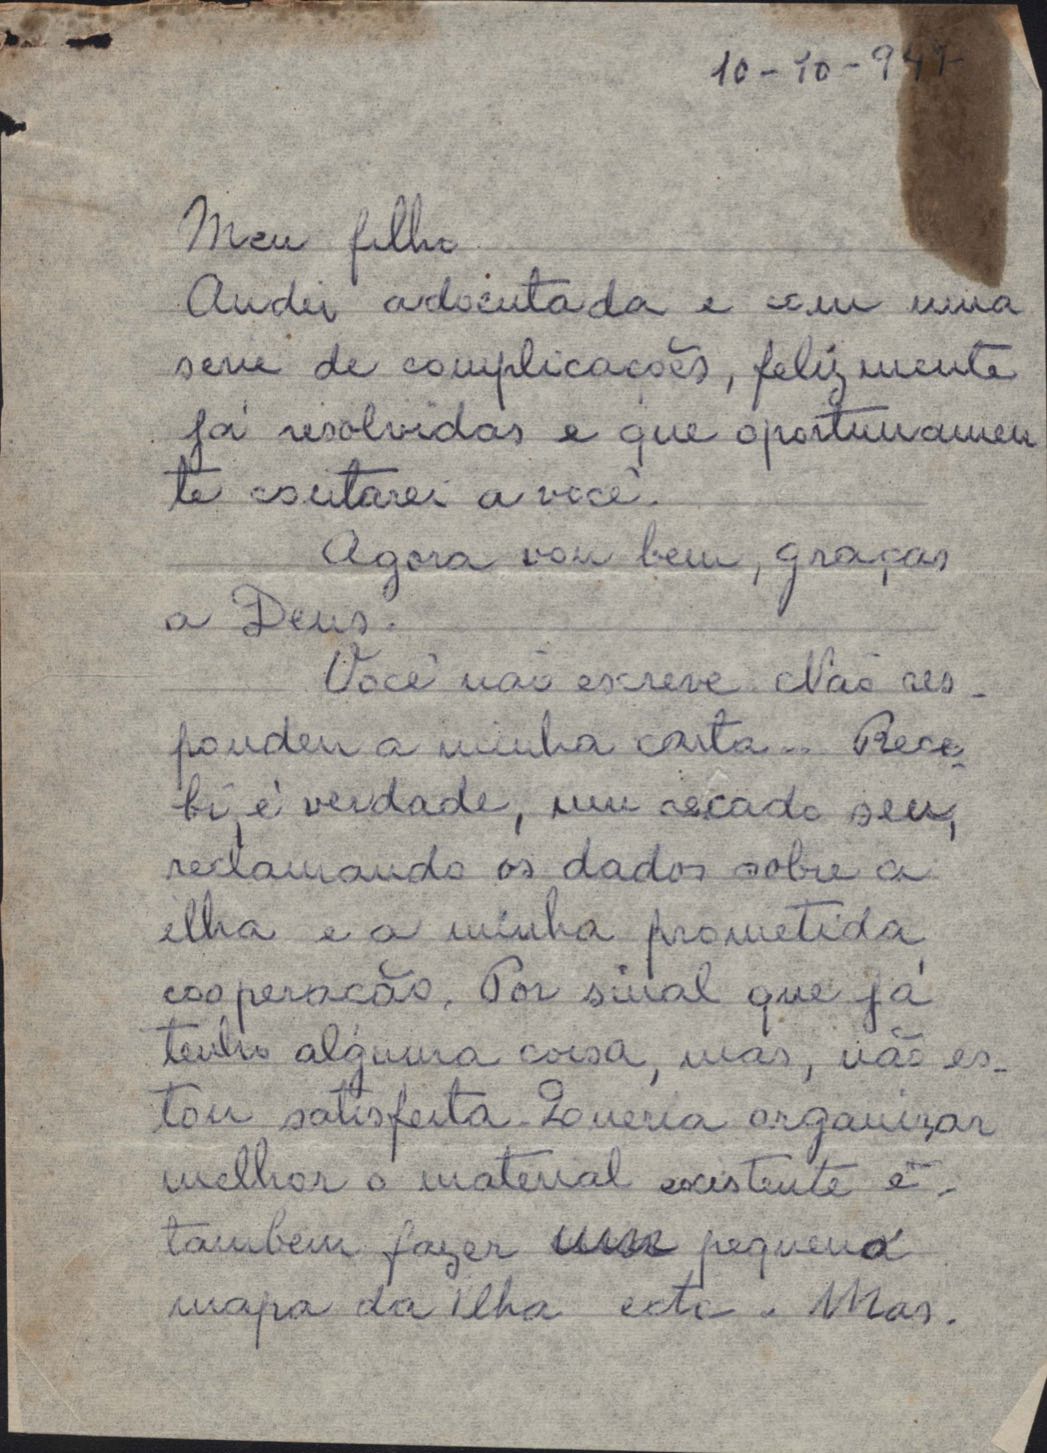 10-10-947
Meu filho
Andei adoentada e com uma
serie de complicações, felizmente
já resolvidas e que oportunamen
te contarei a você.
Agora vou bem, graças
a Deus.
Você não escreve. Não res-
pondeu a minha carta... Rece-
bi, é verdade, um recado seu,
reclamando os dados sobre a
ilha e a minha prometida
cooperacão. Por sinal que já
tenho alguma coisa, mas, não es-
tou satisfeita. Queria organizar
melhor o material existente e
tambem fazer um pequeno
mapa da ilha ectc. Mas.